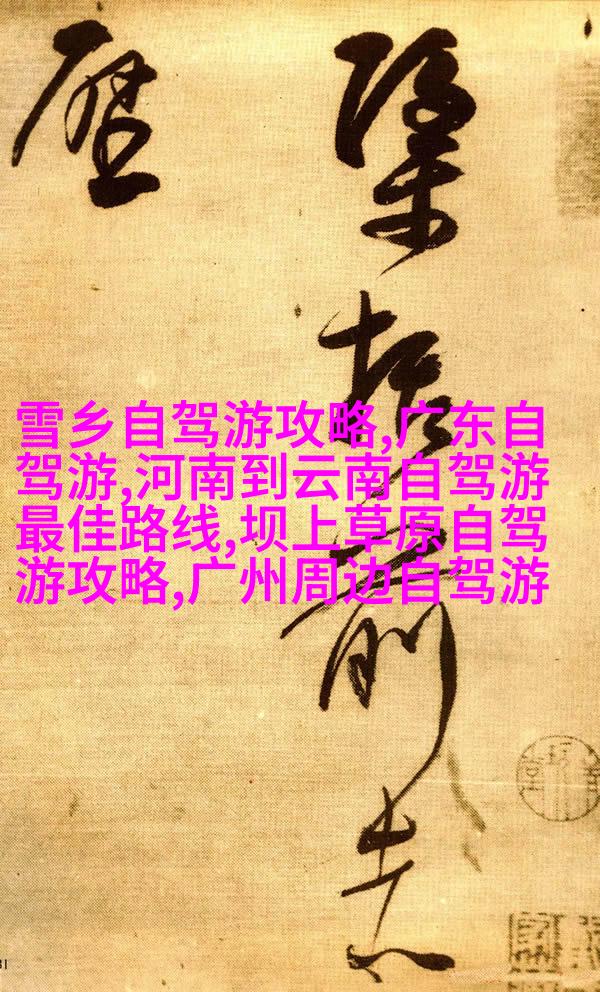 雪乡自驾游攻略,广东自
驾游,河南到云南自驾游
最佳路线,坝上草原自驾
游攻略,广州周边自驾游
前志
歷